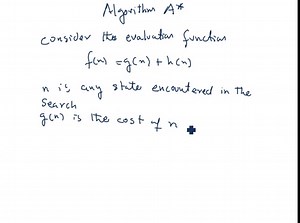 Algorithm A*
consider the evaluation function
f(n) = g(n) + h(n)
n is any state encountered in the
search
g(n) is the cost of n